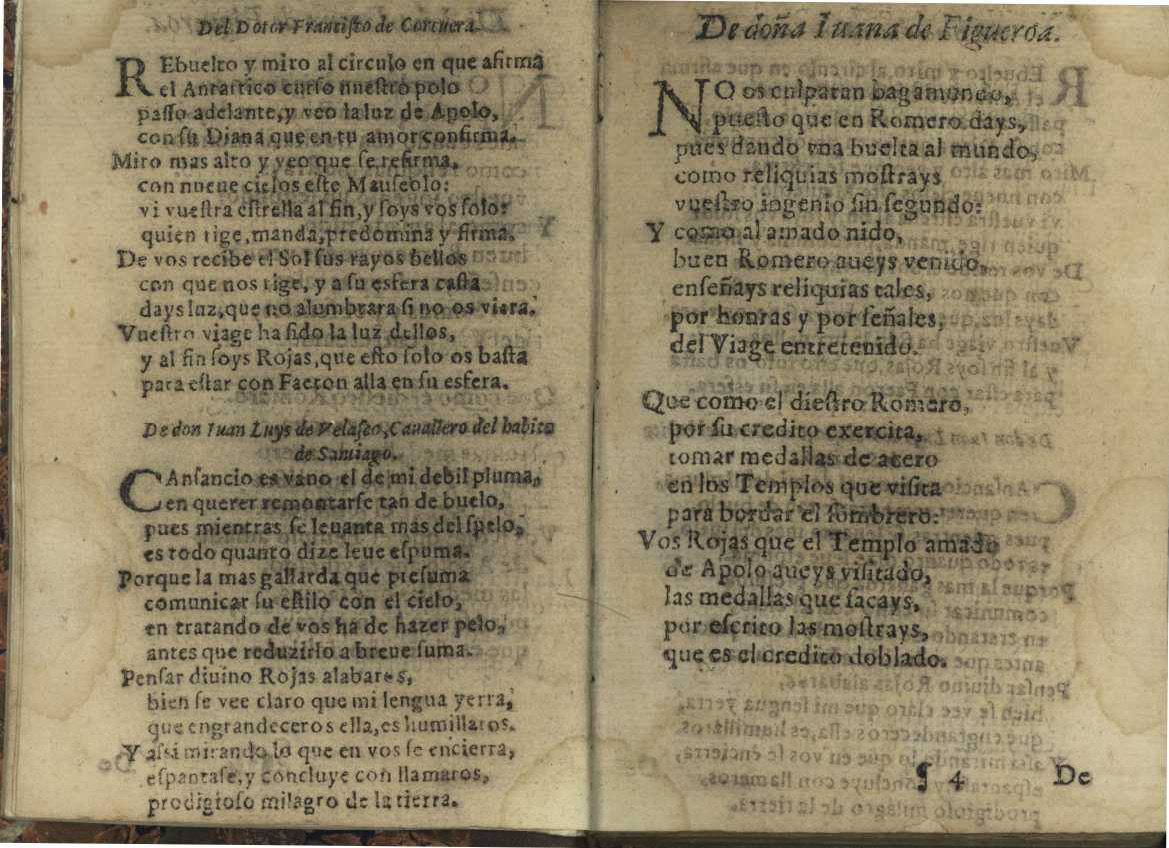 Del Dotor Francisco de Corcuera.
REbuelto y miro al circulo en que afirma
el Antartico curso nuestro polo
passo adelante, y veo la luz de Apolo,
con su Diana que en tu amor confirma.
Miro mas alto y veo que se refirma,
con nueue cielos este Mauseolo:
vi vuestra estrella al fin, y soys vos solo:
quien rige, manda, predomina y firma.
De vos recibe el Sol sus rayos bellos
con que nos rige, y a su esfera casta
days luz, que no alumbrara si no os viera.
Vuestro viage ha sido la luz dellos,
y al fin soys Rojas, que esto solo os basta
para estar con Faeton alla en su esfera.
De don Iuan Luys de Velasco, Cauallero del habito
de Santiago.
CAnsancio es vano el de mi debil pluma,
en querer remontarse tan de buelo,
pues mientras se leuanta mas del suelo,
es todo quanto dize leue espuma.
Porque la mas gallarda que presuma
comunicar su estilo con el cielo,
en tratando de vos ha de hazer pelo,
antes que reduzirlo a breue suma.
Pensar diuino Rojas alabaros,
bien se vee claro que mi lengua yerra,
que engrandeceros ella, es humillaros.
Y assi mirando lo que en vos se encierra,
espantase, y concluye con llamaros,
prodigioso milagro de la tierra.
De doña Iuana de Figueroa.
NO os culparan bagamundo,
puesto que en Romero days,
pues dando vna buelta al mundo,
como reliquias mostrays
vuestro ingenio sin segundo:
Y como al amado nido,
buen Romero aueys venido,
enseñays reliquias tales,
por honras y por señales,
del Viage entretenido.
Que como el diestro Romero,
por su credito exercita,
tomar medallas de acero
en los Templos que visita
para bordar el sombrero:
Vos Rojas que el Templo amado
de Apolo aueys visitado,
las medallas que sacays,
por escrito las mostrays,
que es el credito doblado.
¶ 4 De